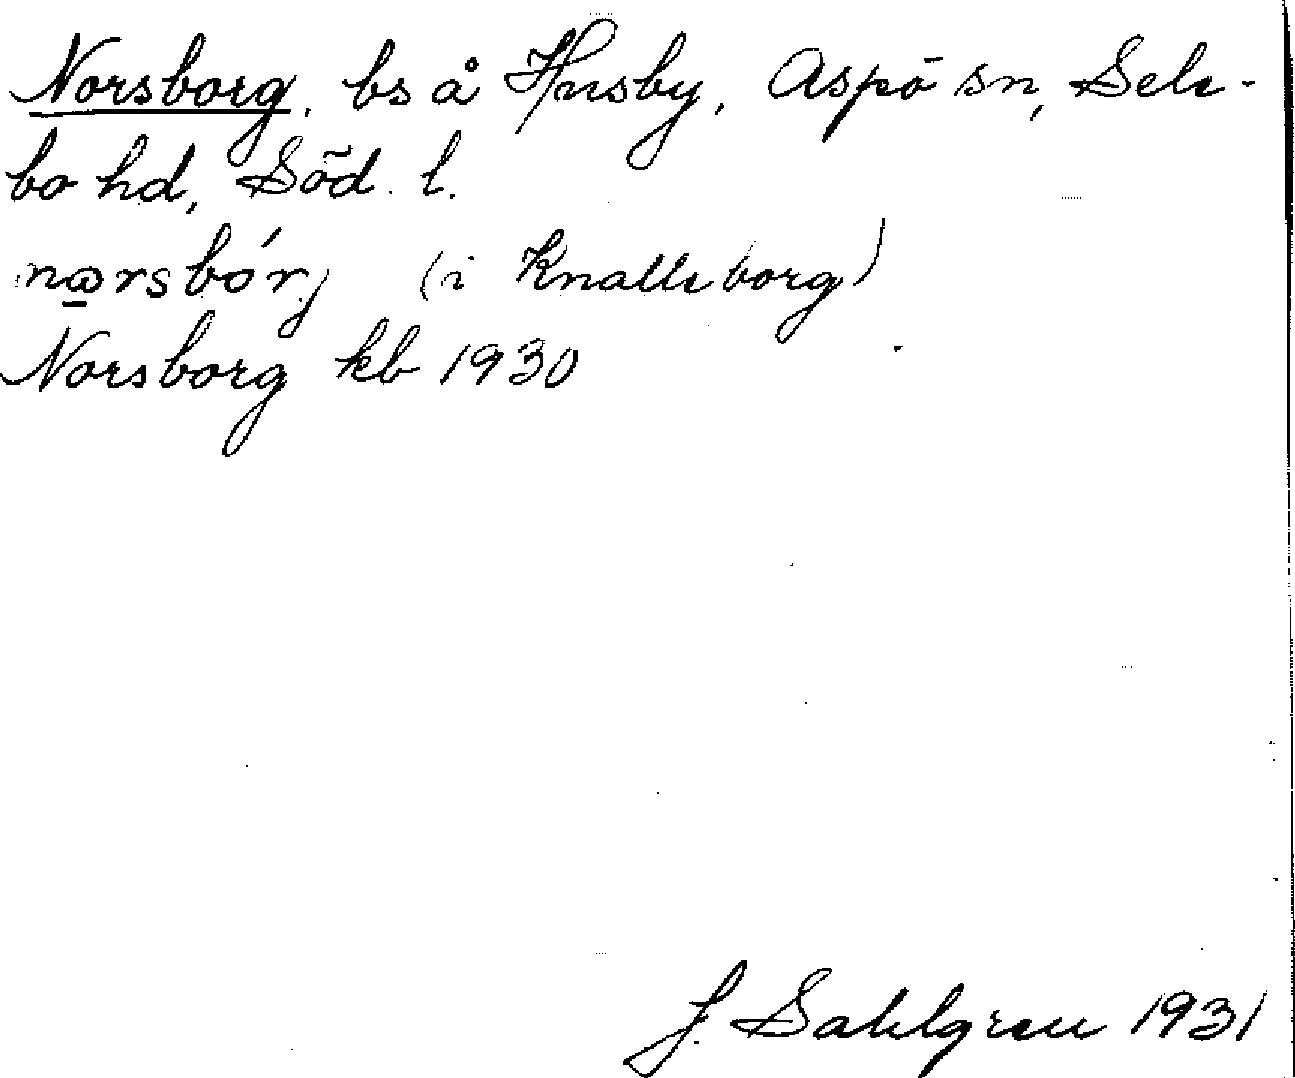 Norsborg, bs å Husby, Aspö sn, Sele-
bo hd, Söd. l.
nørsbórj (i Knalleborg)
Norsborg kb 1930
J. Sahlgren 1931